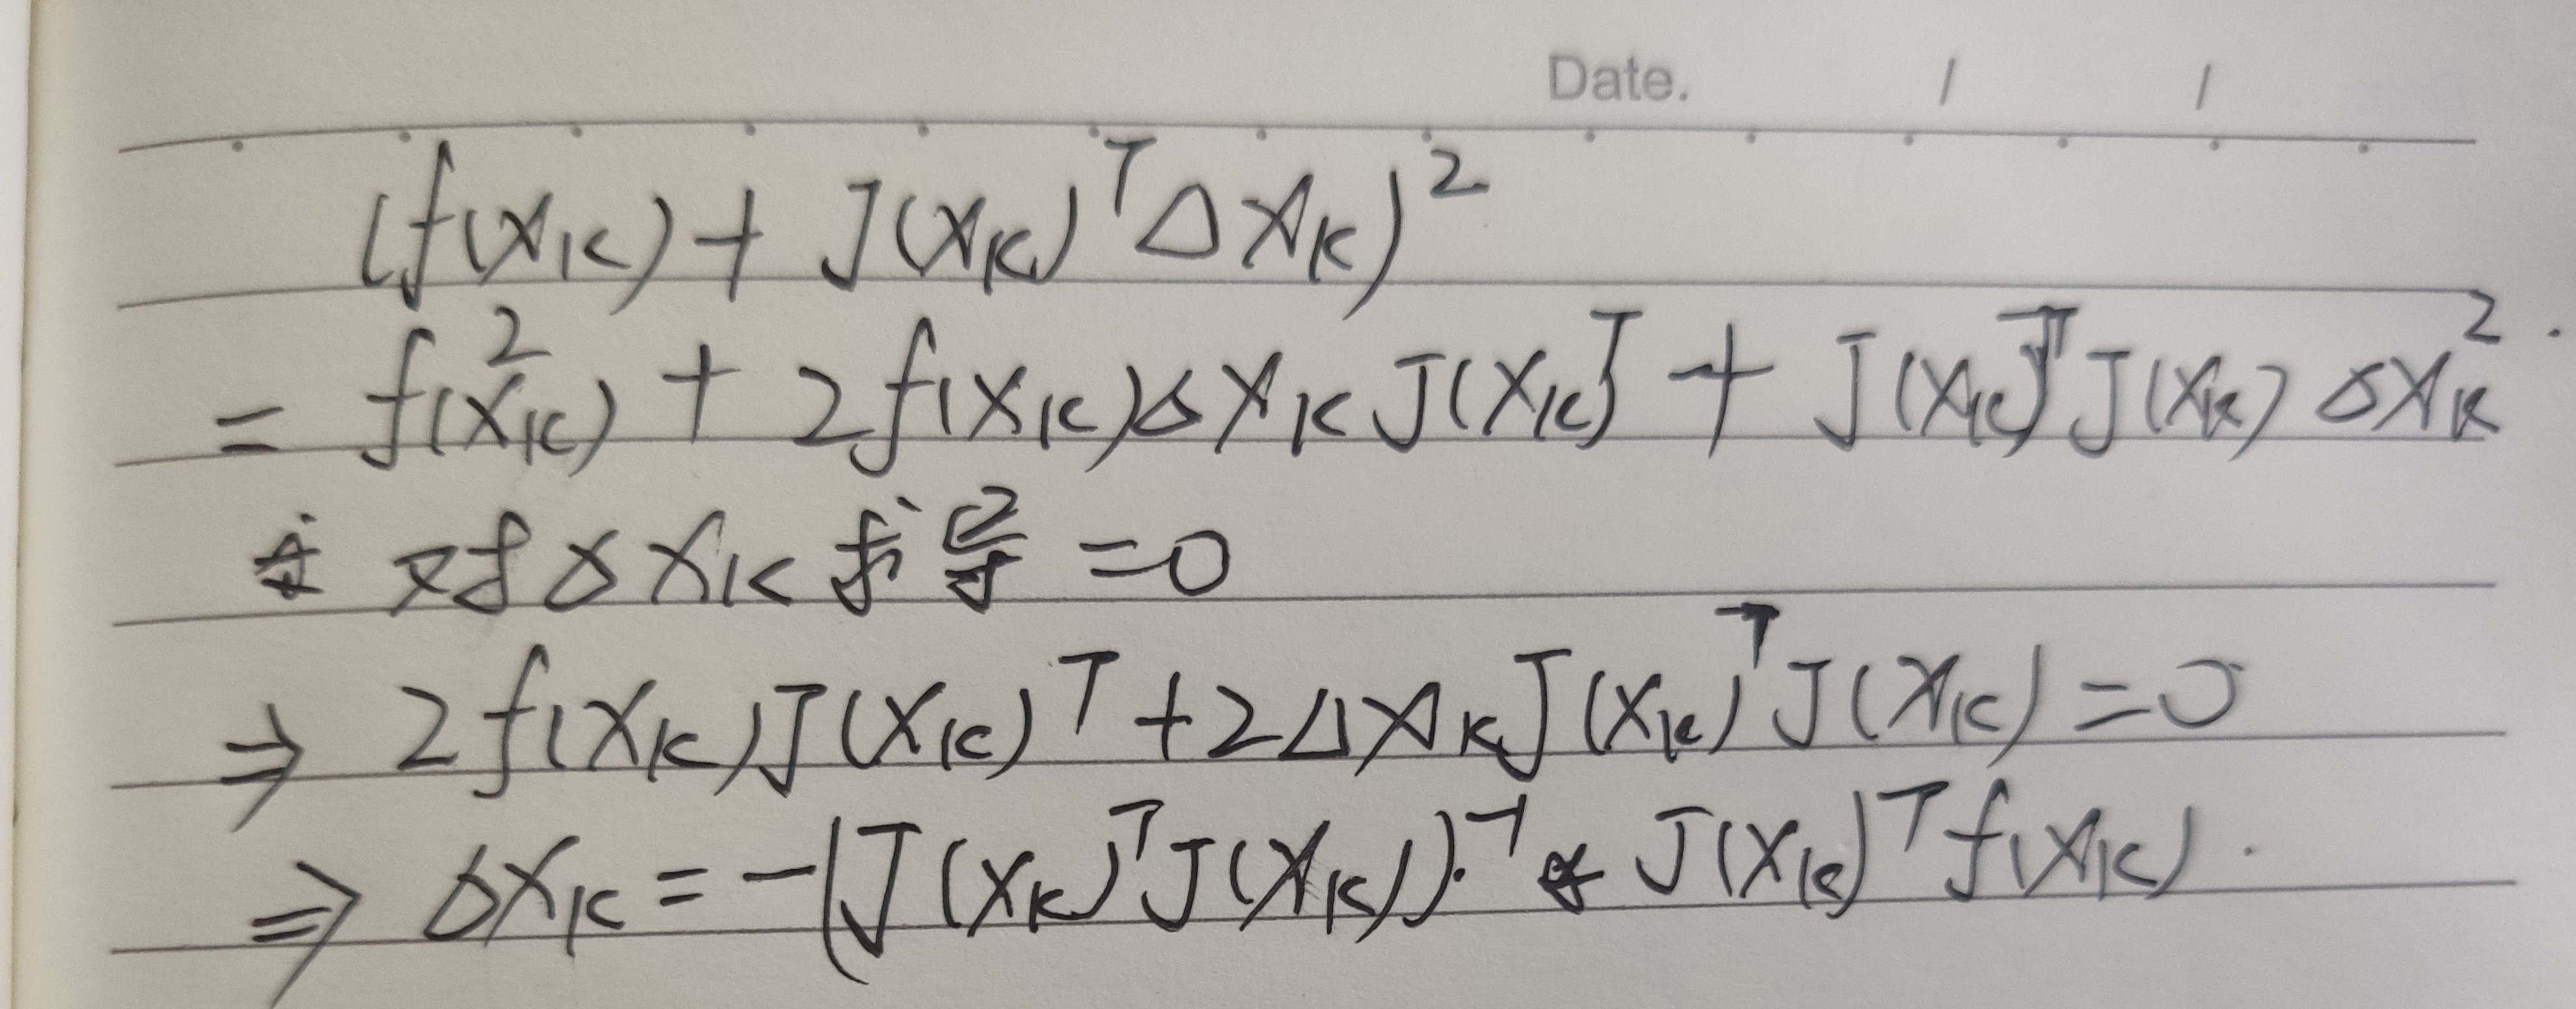 Date. / /
(f(x_k) + J(x_k)^T Δx_k)^2
= f(x_k)^2 + 2f(x_k)Δx_k J(x_k)^T + J(x_k)^T J(x_k) Δx_k^2.
对Δx_k求导=0
⇒ 2f(x_k)J(x_k)^T + 2Δx_k J(x_k)^T J(x_k) = 0
⇒ Δx_k = -(J(x_k)^T J(x_k))^{-1} J(x_k)^T f(x_k).